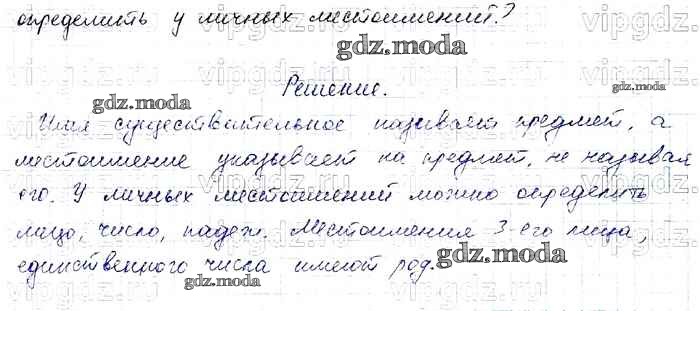 определить у личных местоимений?
gdz.moda
Решение.
gdz.moda
Имя существительное называет предмет, а
местоимение указывает на предмет, не называя
его. У личных местоимений можно определить
лицо, число, падеж. Местоимения 3-его лица,
единственного числа имеют род.
gdz.moda
gdz.moda
vipgdz.ru